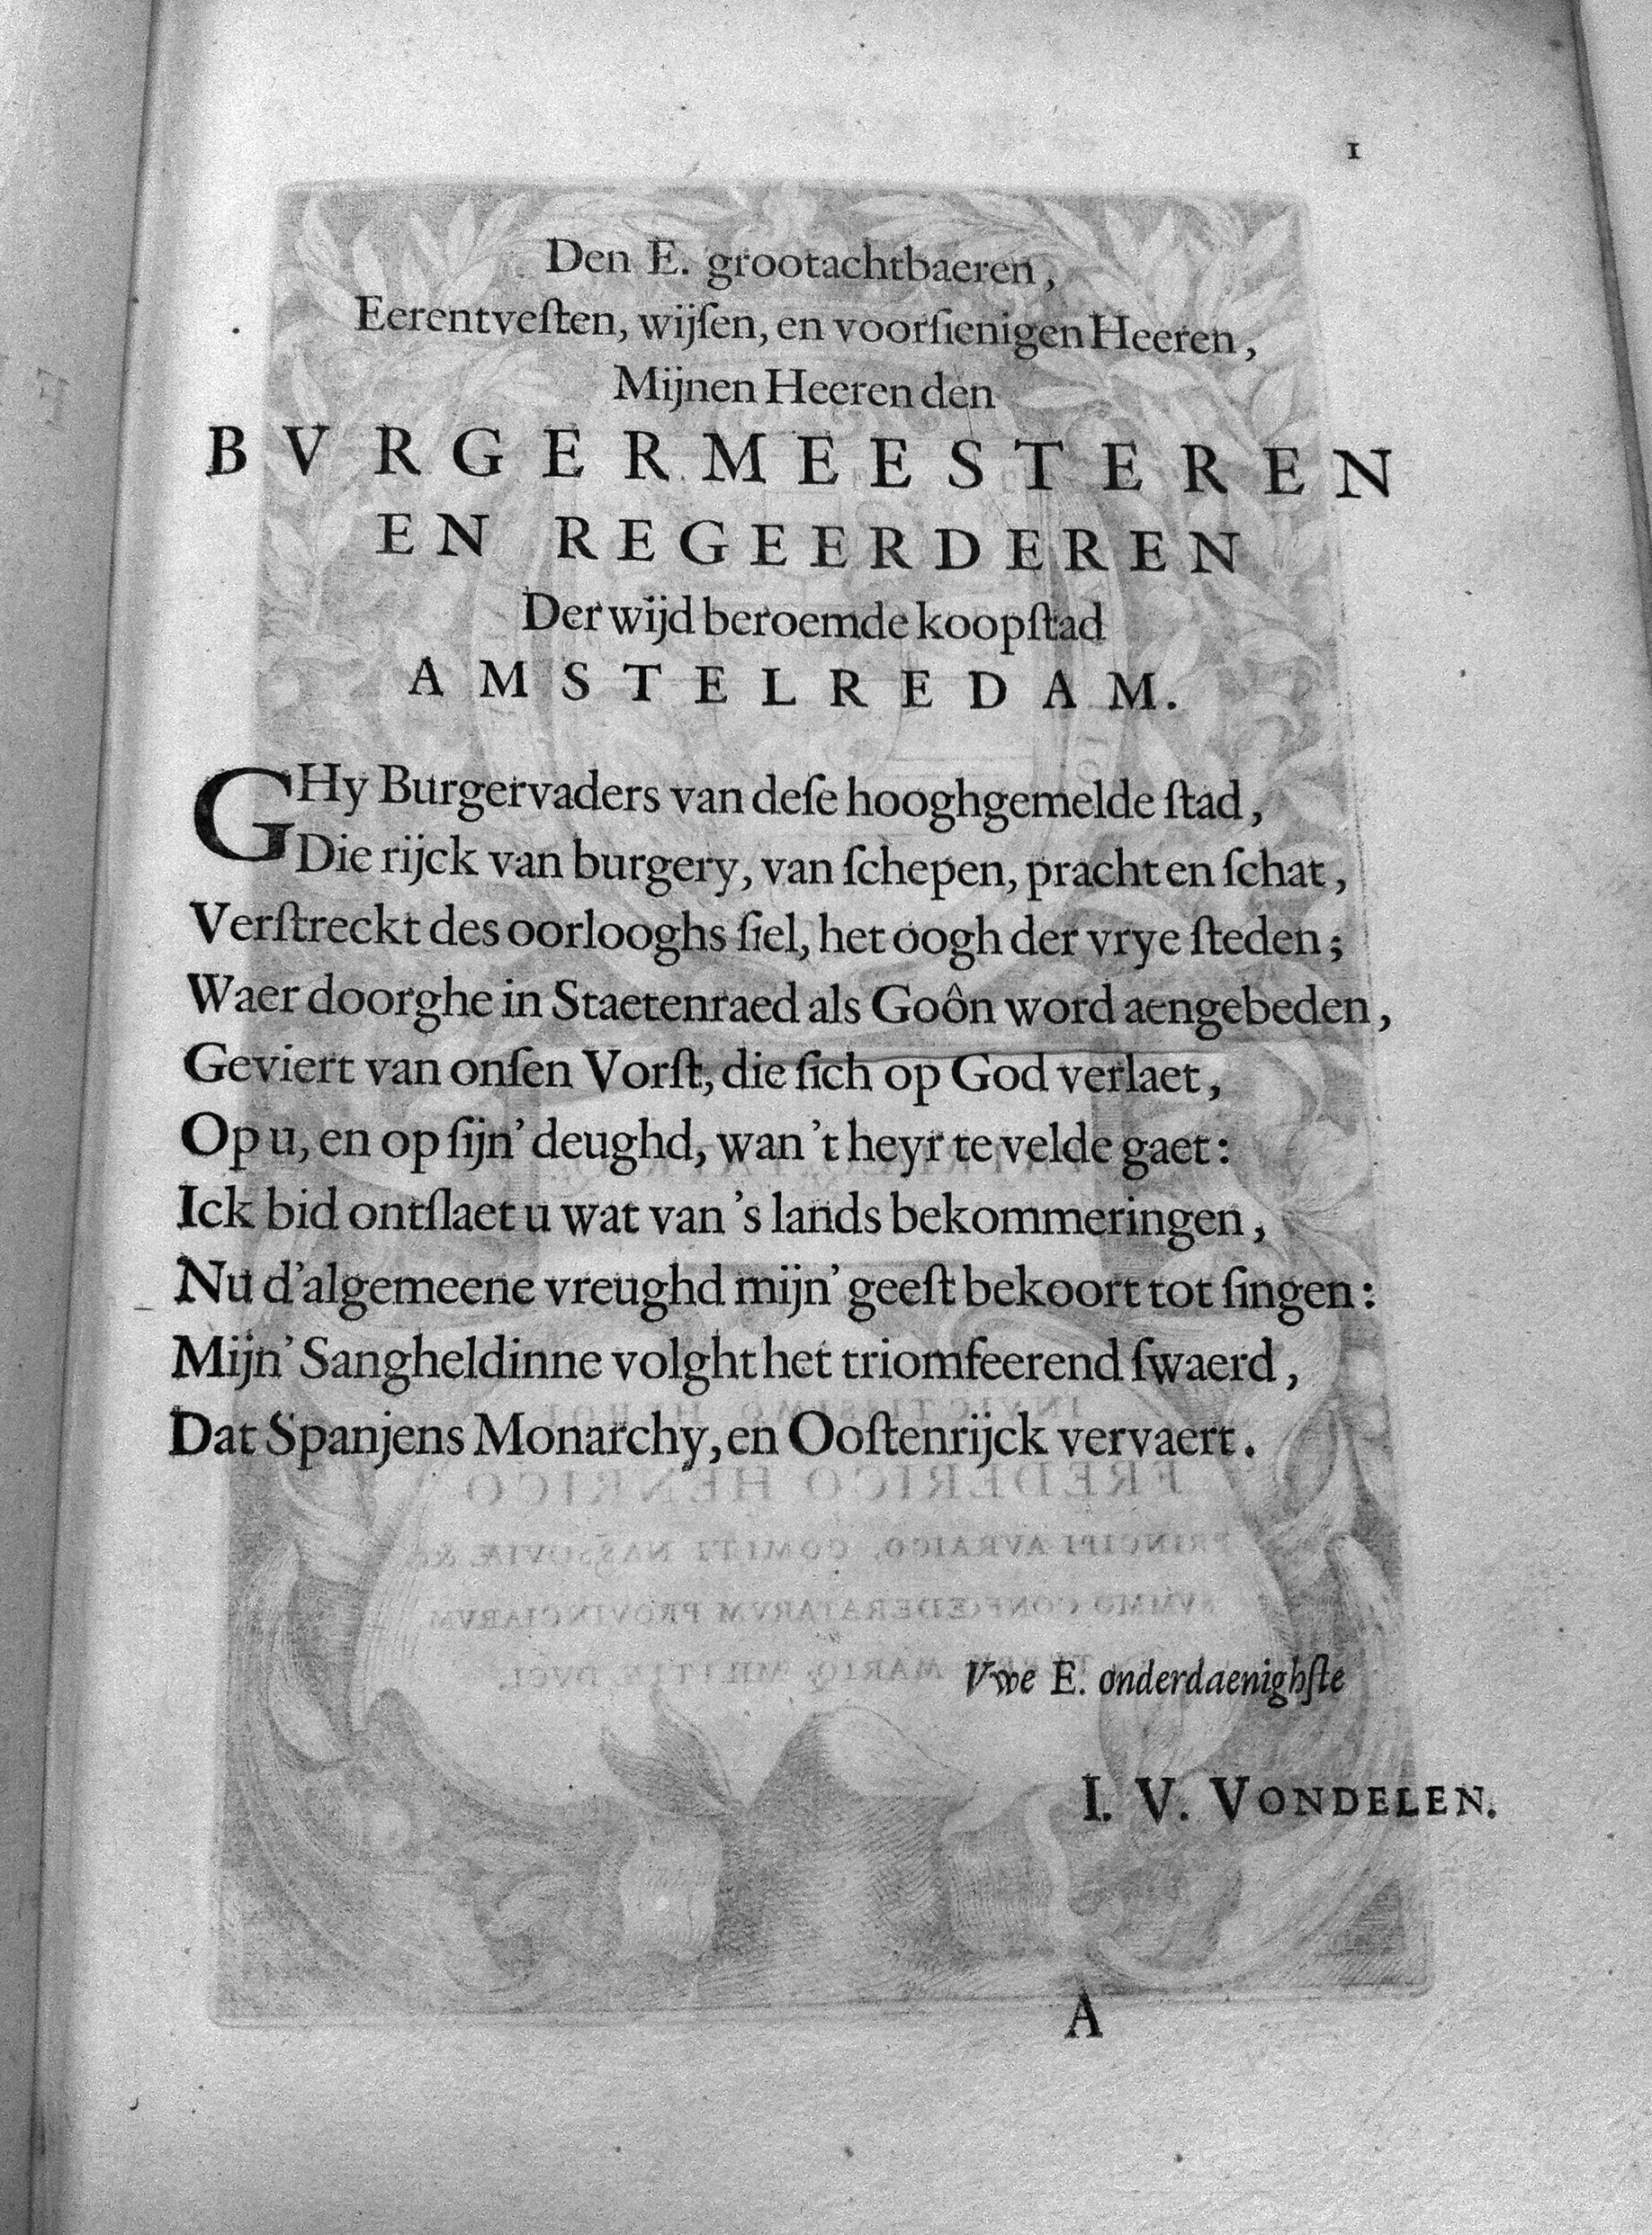 1
Den E. grootachtbaeren,
Eerentveſten, wijſen, en voorſienigen Heeren,
Mijnen Heeren den
BVRGERMEESTEREN
EN REGEERDEREN
Der wijd beroemde koopſtad
AMSTELREDAM.
GHy Burgervaders van deſe hooghgemelde ſtad,
Die rijck van burgery, van ſchepen, pracht en ſchat,
Verſtreckt des oorlooghs ſiel, het oogh der vrye ſteden;
Waer door ghe in Staetenraed als Goôn word aengebeden,
Geviert van onſen Vorſt, die ſich op God verlaet,
Op u, en op ſijn' deughd, wan 't heyr te velde gaet:
Ick bid ontſlaet u wat van 's lands bekommeringen,
Nu d'algemeene vreughd mijn' geeſt bekoort tot ſingen:
Mijn' Sangheldinne volght het triomfeerend ſwaerd,
Dat Spanjens Monarchy, en Ooſtenrijck vervaert.
FREDERICO HENRICO
PRINCIPI AVRAICO, COMITI NASSOVIÆ &
SVMMO CONFŒDERATARVM PROVINCIARVM
MARIQ. MILITIÆ DVCI.
Vwe E. onderdaenighſte
I. V. VONDELEN.
A